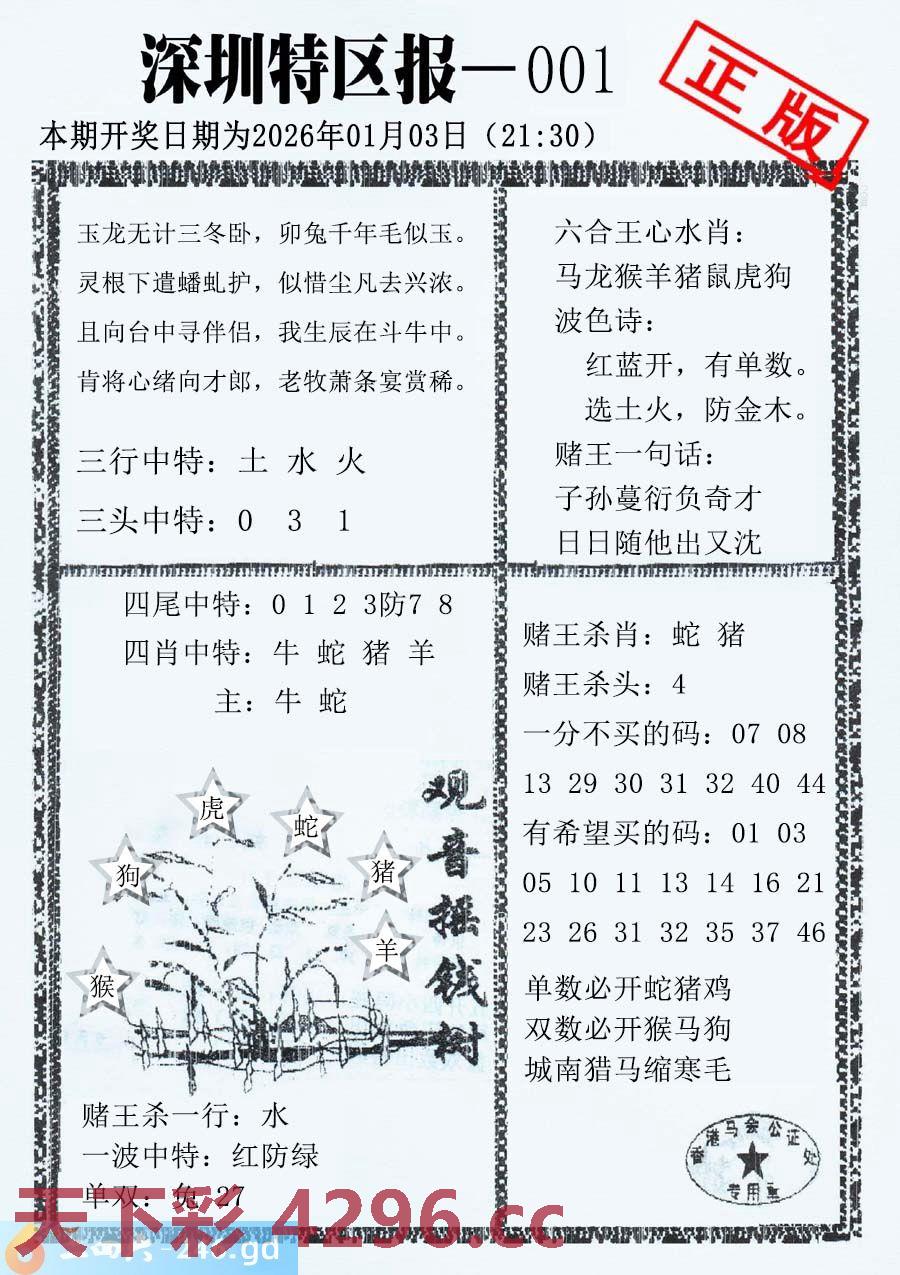 深圳特区报—001
正版
本期开奖日期为2026年01月03日（21:30）
玉龙无计三冬卧，卯兔千年毛似玉。
灵根下遣蟠虬护，似惜尘凡去兴浓。
且向台中寻伴侣，我生辰在斗牛中。
肯将心绪向才郎，老牧萧条宴赏稀。
三行中特：土 水 火
三头中特：0 3 1
六合王心水肖：
马龙猴羊猪鼠虎狗
波色诗：
红蓝开，有单数。
选土火，防金木。
赌王一句话：
子孙蔓衍负奇才
日日随他出又沈
四尾中特：0 1 2 3防7 8
四肖中特：牛 蛇 猪 羊
主：牛 蛇
虎
蛇
狗
猪
羊
猴
观音摇钱树
赌王杀一行：水
一波中特：红防绿
单双：兔 27
赌王杀肖：蛇 猪
赌王杀头：4
一分不买的码：07 08
13 29 30 31 32 40 44
有希望买的码：01 03
05 10 11 13 14 16 21
23 26 31 32 35 37 46
单数必开蛇猪鸡
双数必开猴马狗
城南猎马缩寒毛
香港马会公证处
专用章
天下彩 4296.cc